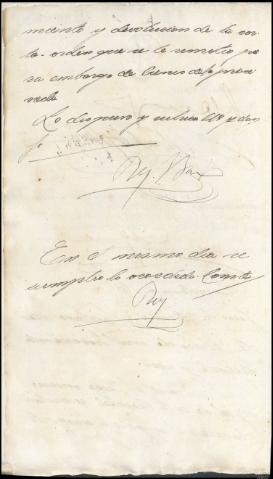 miento y devolucion de la car
ta-orden que se le remitio pa
ra embargo de bienes de
Lo dispuso y rubrica Us y doy
fé
En el mismo dia se
cumplio lo acordado. Conste
Rey